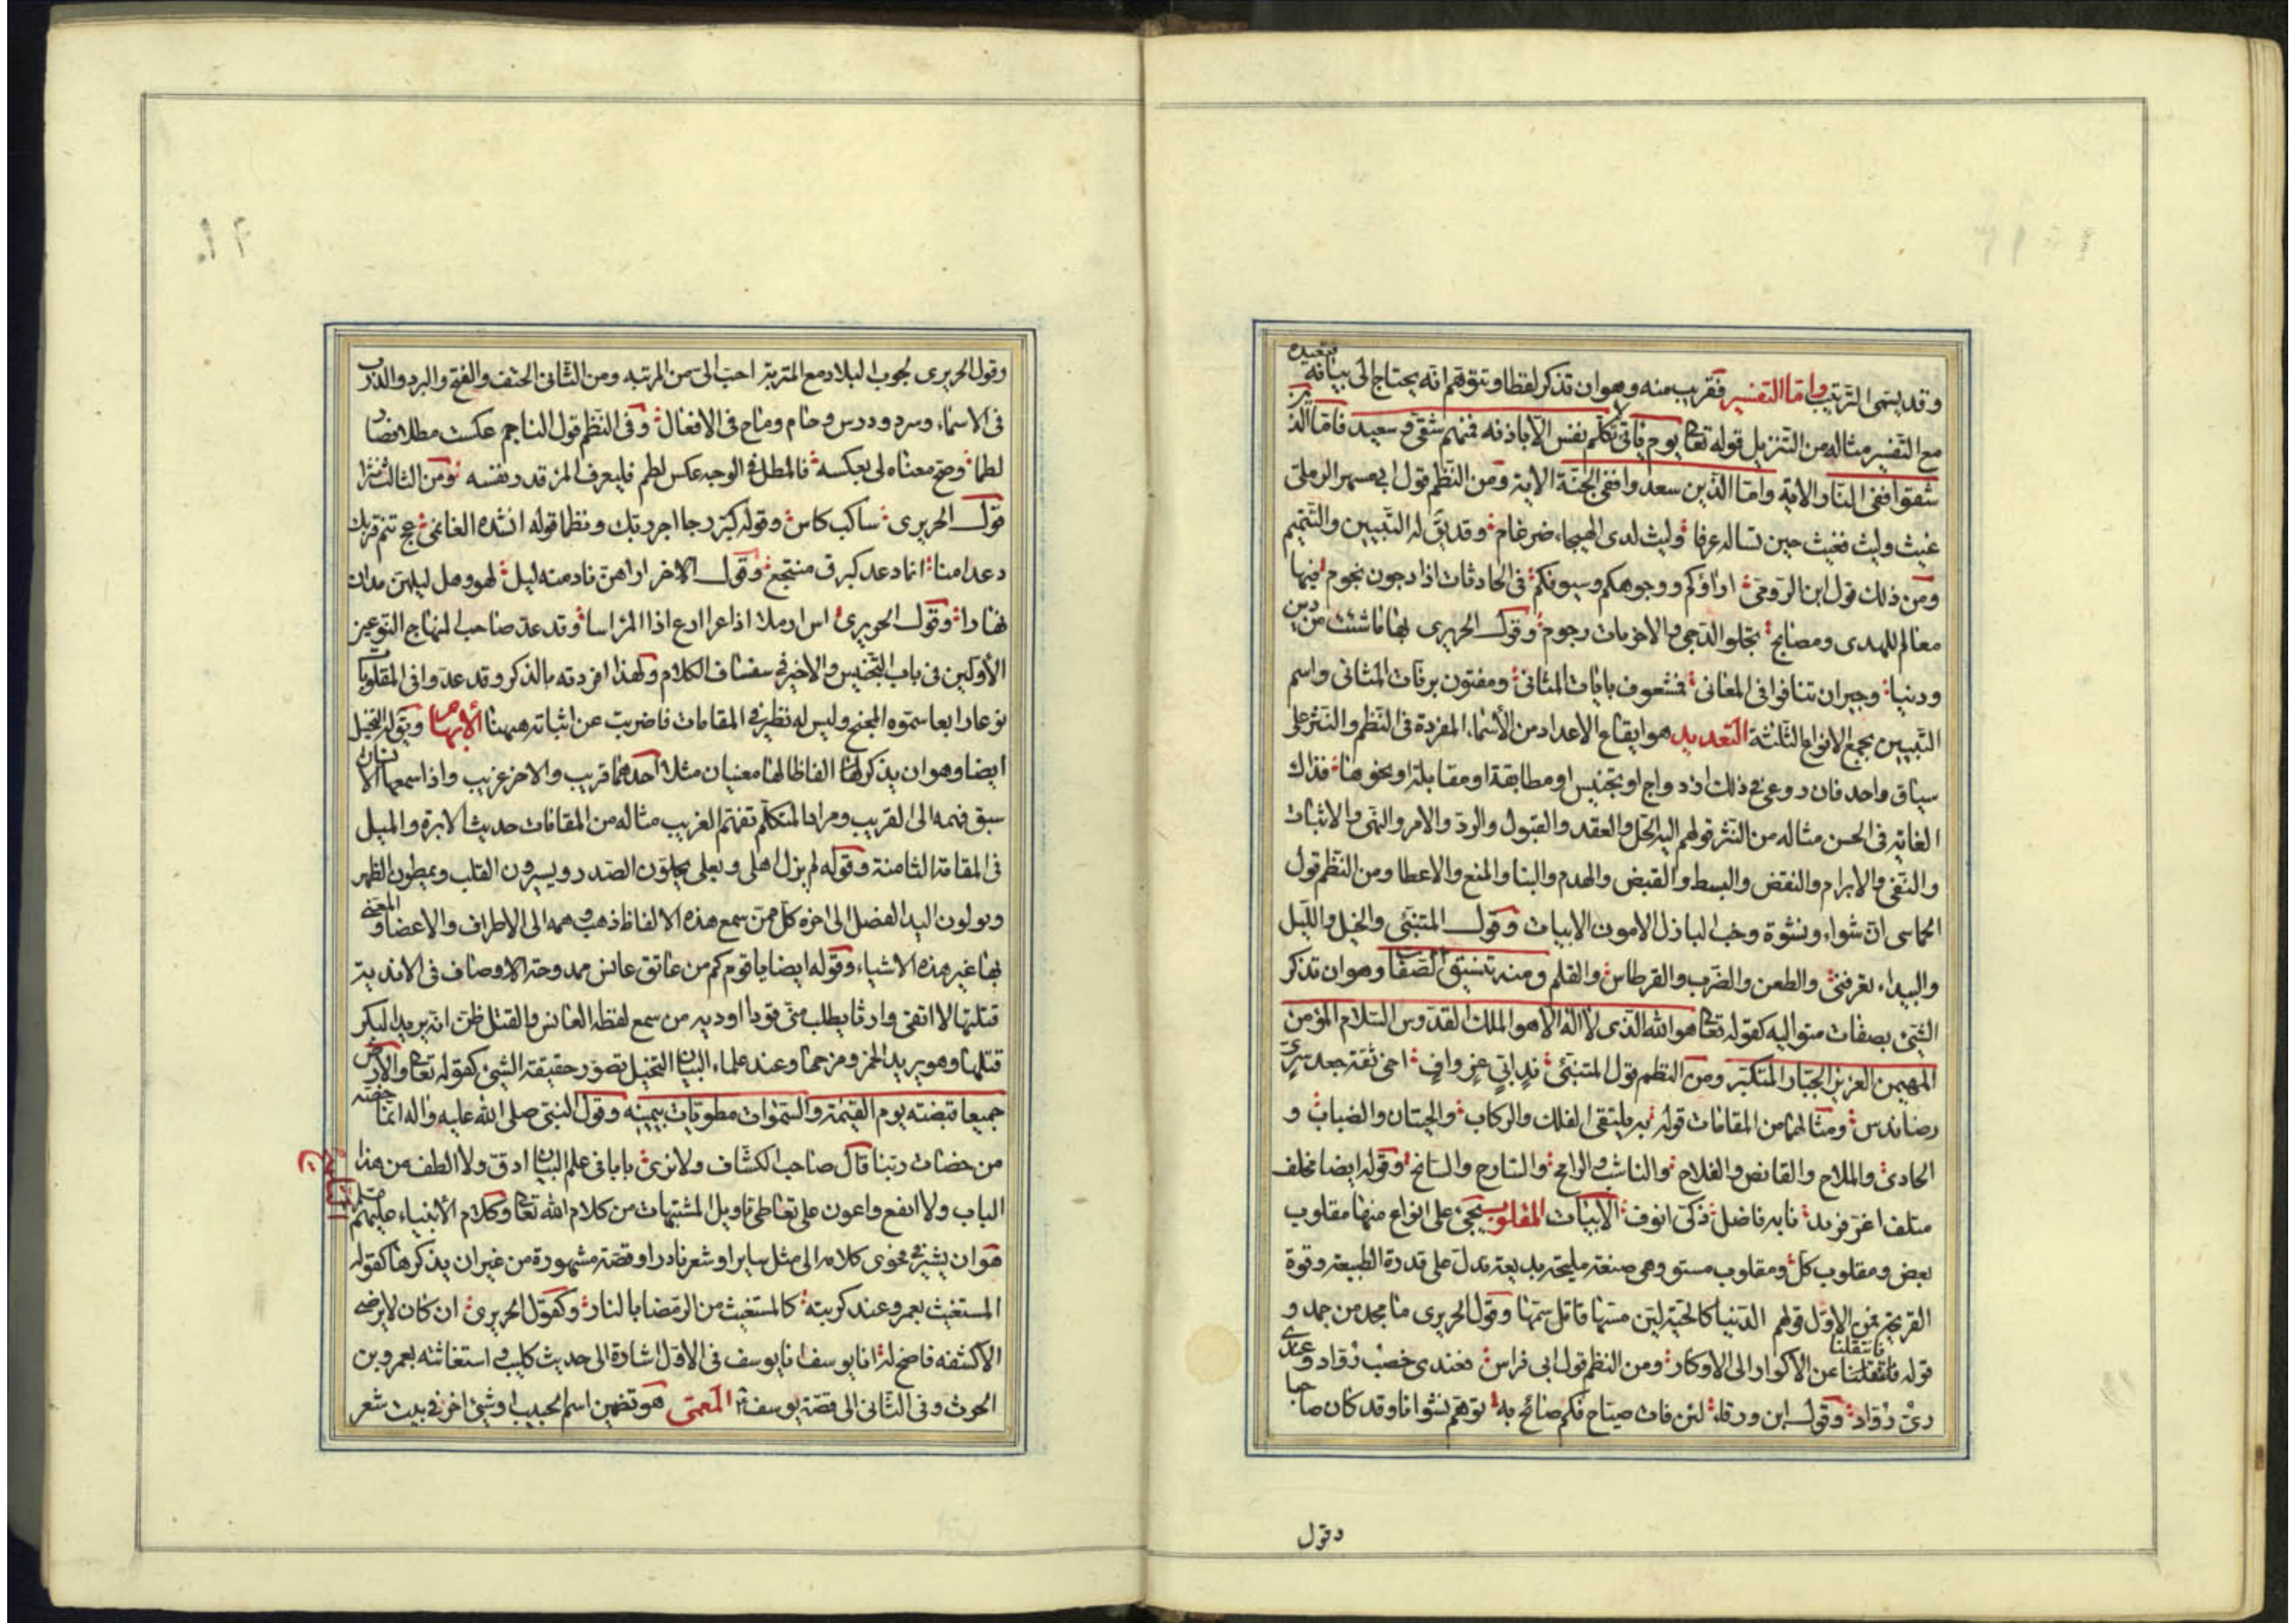 وقد يسمى الترتيب واما التفسير فقريب منه وهو ان تذكر لفظا وتتوهم انه يحتاج الى بيانه فتعيده
مع التفسير مثاله من التنزيل قوله تعا يوم ياتى لا تكلم نفس الا باذنه فمنهم شقى وسعيد فاما الذين
شقوا ففى النار الاية واما الذين سعدوا ففى الجنة الاية ومن النظم قول ابى مسهر الرملى
غيث وليث فغيث حين تساله عرفا وليث لدى الهيجاء ضرغام وقد يق له التبيين والتتميم
ومن ذلك قول ابن الرومى اراؤكم ووجوهكم وسيوفكم فى الحادثات اذا دجون نجوم فيها
معالم للهدى ومصابح تجلو الدجى والاخريات رجوم وقول الحريرى بها ما شئت من دين
ودنيا وجيران تنافوا فى المعانى فشعوف بايات المثانى ومفتون برنات المثانى واسم
التبيين يجمع الانواع الثلثة التعديد هو ايقاع الاعداد من الأسماء المفردة فى النظم والنثر على
سياق واحد فان روعى فى ذلك ازدواج او تجنيس او مطابقة او مقابلة او نحوها فذاك
الغاية فى الحسن مثاله من النثر قولهم اليه الحل والعقد والقبول والرد والامر والنهى والاثبات
والنفى والابرام والنقض والبسط والقبض والهدم والبنا والمنع والاعطا ومن النظم قول
الحماسى ان شواء ونشوة وخبب البازل الامون الابيات وقول المتنبئى والخيل والليل
والبيداء تعرفنى والطعن والضرب والقرطاس والقلم ومنه تنسيق الصفات وهو ان تذكر
الشئ بصفات متواليه كقوله تعا هو الله الذى لا اله الا هو الملك القدوس السلام المؤمن
المهيمن العزيز الجبار المتكبر ومن النظم قول المتنبئى ند ابى غر واف اخى ثقة جعد سرى
رضا ندس ومثالها من المقامات قوله به ملتقى الفلك والركاب والحيتان والضباب و
الحادى والملاح والقانص والفلاح والناشب والرامح والسارح والسابح وقوله ايضا مخلف
متلف اغر فريد نابه فاضل ذكى انوف الابيات المقلوب يجئ على انواع منها مقلوب
بعض ومقلوب كل ومقلوب مستو وهى صنعة مليحة بديعة تدل على قدرة الطبيعة وقوة
القريحة فمن الاول قولهم الدنيا كالحية لين مسها قاتل سمها وقول الحريرى ما مجد من جمد و
قوله فانتقلنا عن الاكوار الى الاوكار ومن النظم قول ابى فراس فعندى خصب زواد وعندى
رى رواد وقول ابن ورقاء لئن فات صياح فكم صائح به توهم نشوانا وقد كان صاحبا
وقول
وقول الحريرى لجوب البلاد مع المتربة احب الى من المرتبه ومن الثانى الحتف والفتح والبرد والدرب
فى الاسماء وسرد ودرس وحام وماح فى الافعال وفى النظم قول الناجم عكست مطلا فصار
لطما وصح معناه لى بعكسه فالمطل فى الوجه عكس لطم فليعرف المرء قدر نفسه ومن الثالث نثرا
قول الحريرى ساكب كاس وقوله كبر رجا اجر ربك ونظما قوله انشده الغانمى عج تنم قربك
دعد امنا انما دعد كبرق منتجع وقول الاخر اراهن نادمنه ليل لهو وهل ليلهن مدان
نهارا وقول الحريرى اس ارملا اذا عرا ارع اذا المرء اسا وقد عد صاحب المنهاج النوعين
الأولين فى باب التجنيس والاخير فى سفساف الكلام ولهذا افردته بالذكر وقد عدوا فى المقلوب
نوعا رابعا سموه المجنح وليس له نظير فى المقامات فاضربت عن اثباته ههنا الأيهام ويق له التخييل
ايضا وهو ان يذكر لها الفاظا لها معنيان مثلا احدهما قريب والاخر غريب واذا اسمعها الانسان
سبق فهمه الى القريب ومراد المتكلم تفهم الغريب مثاله من المقامات حديث الابرة والميل
فى المقامة الثامنة وقوله لم يزل اهلى وبعلى يحلون الصدر ويسيرون القلب ويمطون الظهر
ويولون اليد الفضل الى اخره كل من سمع هذه الالفاظ ذهب وهمه الى الاطراف والاعضا والمعنى
بها غير هذه الاشياء وقوله ايضا يا قوم كم من عاتق عانس ممدوحة الاوصاف فى الاندية
قتلتها لا اتقى وارثا يطلب منى قودا او دية من سمع لفظه العانس والقتل ظن انه يريد البكر
قتلها وهو يريد الخمر ومزجها وعند علماء البيان التخييل تصور حقيقة الشئ كقوله تعا والارض
جميعا قبضته يوم القيمة والسموات مطويات بيمينه وقول النبى صلى الله عليه واله انما حفنة
من حفنات ربنا قال صاحب الكشاف ولا نرى بابا فى علم البيان ادق ولا الطف من هذا
الباب ولا انفع واعون على تعاطى تاويل المشتبهات من كلام الله تعا وكلام الأنبياء عليهم
التلميح
هو ان يشير فى فحوى كلامه الى مثل ساير او شعر نادر او قصة مشهورة من غير ان يذكرها كقوله
المستغيث بعمرو عند كربته كالمستغيث من الرمضا بالنار وكقول الحريرى ان كان لا يرضى
الا كشفه فاصح له انا يوسف انا يوسف فى الاول اشارة الى حديث كليب واستغاثته بعمرو بن
الحرث وفى الثانى الى قصة يوسف المعمى هو تضمين اسم الحبيب او شئ اخر فى بيت شعر